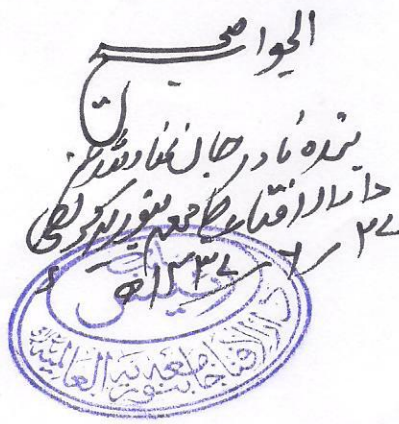 الجواب صحیح
بندہ نادر جان عفا اللہ عنہ
دارالافتاء جامعہ بنوریہ کراچی
۲۷/۶/۱۴۳۷ھ
دارالافتاء جامعہ بنوریہ العالمیہ